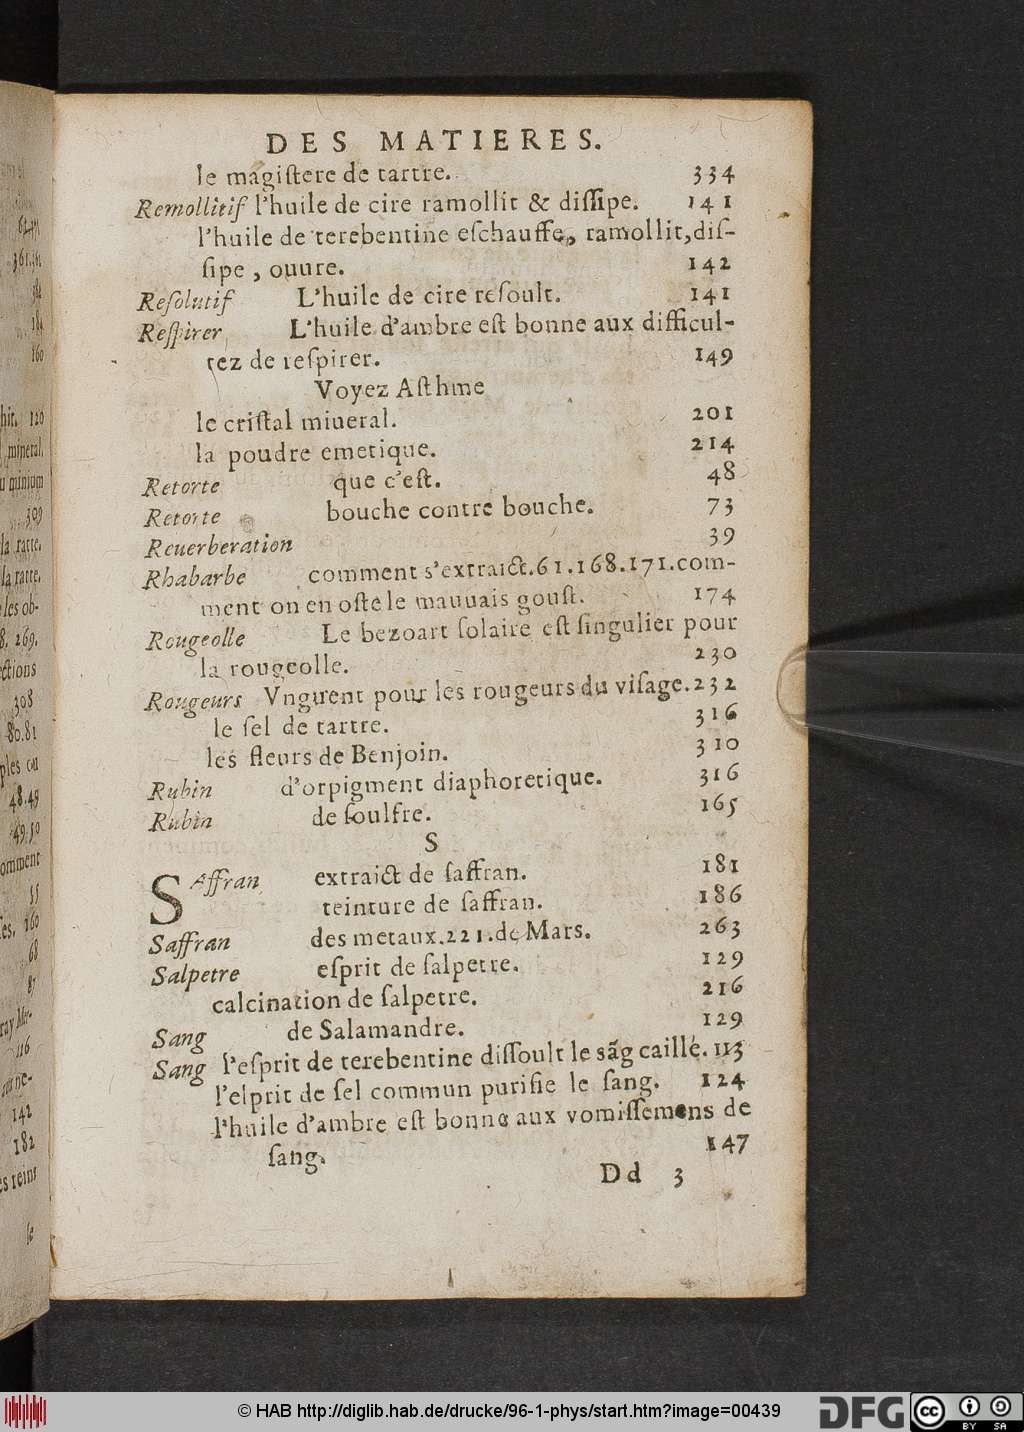 DES MATIERES.
le magiſtere de tartre. 334
Remollitif l'huile de cire ramollit & diſſipe. 141
l'huile de terebentine eſchauffe, ramollit, diſ-
ſipe, ouure. 142
Reſolutif L'huile de cire reſoult. 141
Reſpirer L'huile d'ambre eſt bonne aux difficul-
tez de reſpirer. 149
Voyez Aſthme
le criſtal miueral. 201
la poudre emetique. 214
Retorte que c'eſt. 48
Retorte bouche contre bouche. 73
Reuerberation 39
Rhabarbe comment s'extraict. 61. 168. 171. com-
ment on en oſte le mauuais gouſt. 174
Rougeolle Le bezoart ſolaire eſt ſingulier pour
la rougeolle. 230
Rougeurs Vnguent pour les rougeurs du viſage. 232
le ſel de tartre. 316
les fleurs de Benjoin. 310
Rubin d'orpigment diaphoretique. 316
Rubin de ſoulfre. 165
S
SAffran extraict de ſaffran. 181
teinture de ſaffran. 186
Saffran des metaux. 221. de Mars. 263
Salpetre eſprit de ſalpetre. 129
calcination de ſalpetre. 216
Sang de Salamandre. 129
Sang l'eſprit de terebentine diſſoult le sãg caillé. 113
l'eſprit de ſel commun purifie le ſang. 124
l'huile d'ambre eſt bonne aux vomiſſemens de
ſang. 147
Dd 3
361.362
184
160
120
mineral,
309
la ratte,
la ratte,
les ob-
269.
ections
308
80.81
ples ou
48.49
49.50
omment
55
160
68
87
116
142
182
es reins
le
© HAB http://diglib.hab.de/drucke/96-1-phys/start.htm?image=00439
DFG
cc
BY SA